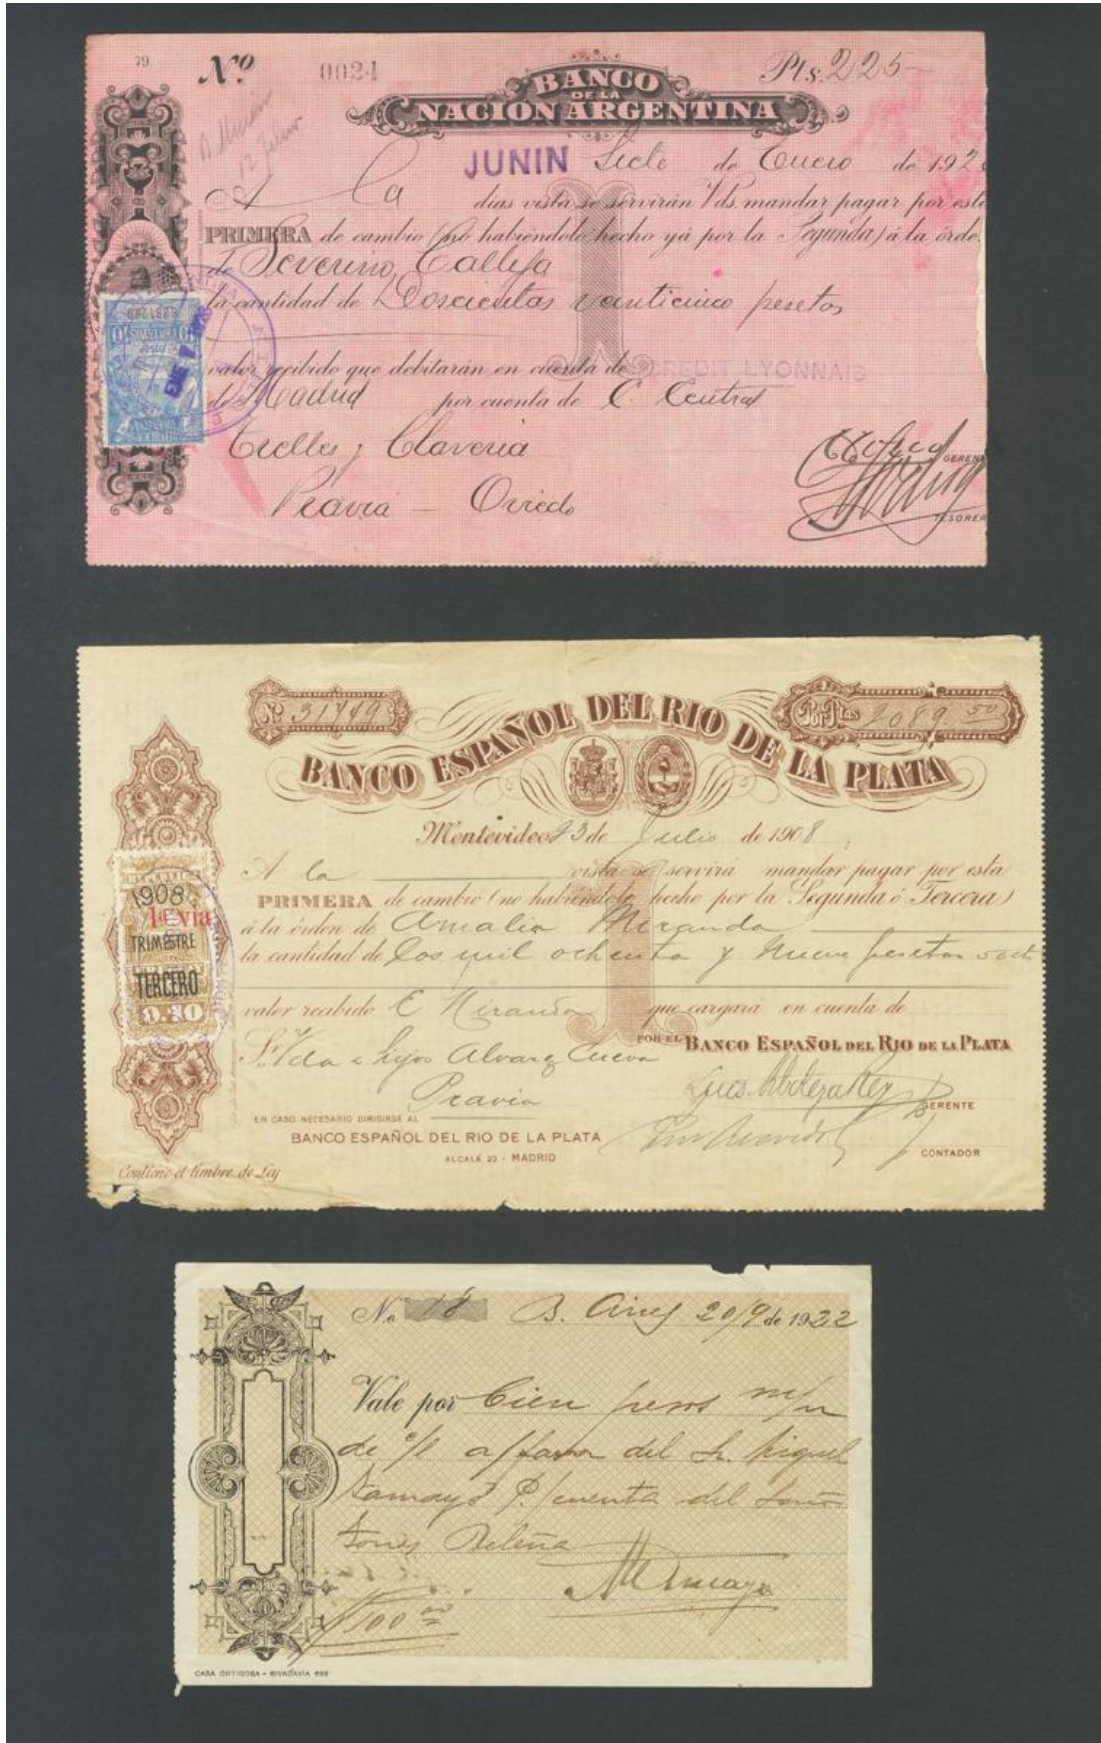 79
Nº 0024
Pts. 225-
BANCO
DE LA
NACIÓN ARGENTINA
JUNIN Siete de Enero de 192
A la días vista se servirán Vds. mandar pagar por esta
PRIMERA de cambio (no habiéndolo hecho yá por la Segunda) á la órde
de Severino Calleja
la cantidad de Doscientas veinticinco pesetas
valor recibido que debitarán en cuenta de CREDIT LYONNAIS
de Madrid por cuenta de C. Central
Trelles y Claveria
Pravia - Oviedo
GEREN
TESORER
Nº 31749
Por Ptas 2089.50
BANCO ESPAÑOL DEL RIO DE LA PLATA
Montevideo 23 de Julio de 1908
A la vista se servirá mandar pagar por esta
PRIMERA de cambio (no habiéndolo hecho por la Segunda ó Tercera)
á la órden de Amalia Miranda
la cantidad de Dos mil ochenta y nueve pesetas 50 ct
valor recibido E Miranda que cargará en cuenta de
1908
1ª via
TRIMESTRE
TERCERO
POR EL BANCO ESPAÑOL DEL RIO DE LA PLATA
Vda e hijos Alvarez Cueva
Pravia
GERENTE
EN CASO NECESARIO DIRIGIRSE AL
BANCO ESPAÑOL DEL RIO DE LA PLATA
ALCALÁ 23 - MADRID
CONTADOR
Contiene el timbre de Ley
No. 18 B. Aires 20/9 de 1922
Vale por Cien pesos m/n
de c/l a/favor del Sr. Miguel
Tamayo P./cuenta del
$100.00
CASA ORTIGOSA - RIVADAVIA